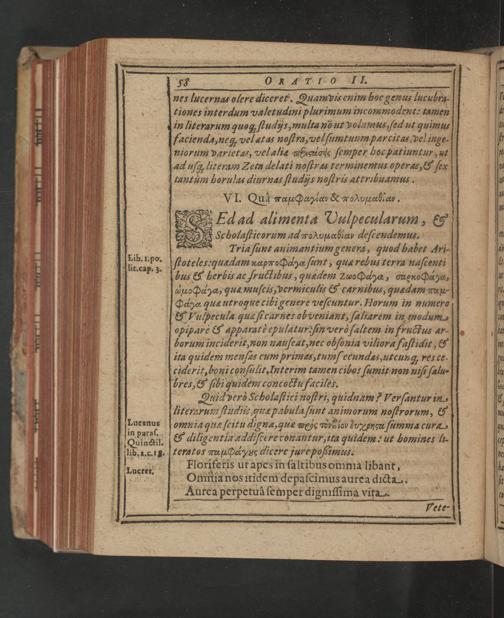 58 ORATIO II.
nes lucernas olere diceret. Quamvis enim hoc genus lucubra-
tiones interdum valetudini plurimum incommodent: tamen
in literarum quoq, studijs, multa nõ ut volumus, sed ut quimus
facienda, neq, vel ætas nostra, vel sumtuum parcitas, vel inge-
niorum varietas, vel alia semper hoc patiuntur, ut
ad usq, literam Zeta delati nostras terminemus operas, & sex
tantùm horulas diurnas studijs nostris attribuamus.
VI. Quà παμφαγίαν & πολυμαθίαν.
SEd ad alimenta Vulpecularum, &
Scholasticorum ad πολυμαθίαν descendemus.
Tria sunt animantium genera, quod habet Ari-
stoteles: quædam καρποφάγα sunt, quæ rebus terra nascenti
bus & herbis ac fructibus, quædem ζωοφάγα, σαρκοφάγα,
ὠμοφάγα, quæ muscis, vermiculis & carnibus, quædam παμ-
φάγα quæ utroque cibi genere vescuntur. Horum in numero
& Vulpecula quæ si carnes obveniant, saltarem in modum
opiparè & apparatè epulatur: sin verò saltem in fructus ar-
borum inciderit, non nauseat, nec obsonia viliora fastidit, &
ita quidem mensas cum primas, tum secundas, utcunq, res ce-
ciderit, boni consulit. Interim tamen cibos sumit non nisi salu-
bres, & sibi quidem concoctu faciles.
Quid verò Scholastici nostri, quidnam? Versantur in
literarum studiis, quæ pabula sunt animorum nostrorum, &
omnia quæ scitu digna, quæ summa cura
& diligentia addiscere conantur, ita quidem: ut homines li-
teratos παμφάγες dicere jure possimus.
Floriferis ut apes in saltibus omnia libant,
Omnia nos itidem depascimus aurea dicta.
Aurea perpetuâ semper dignissima vita.
Vete-
Lib. 1. po.
lit. cap. 3.
Lucanus
in paras.
Quinctil.
lib. 1. c. 18.
Lucret.